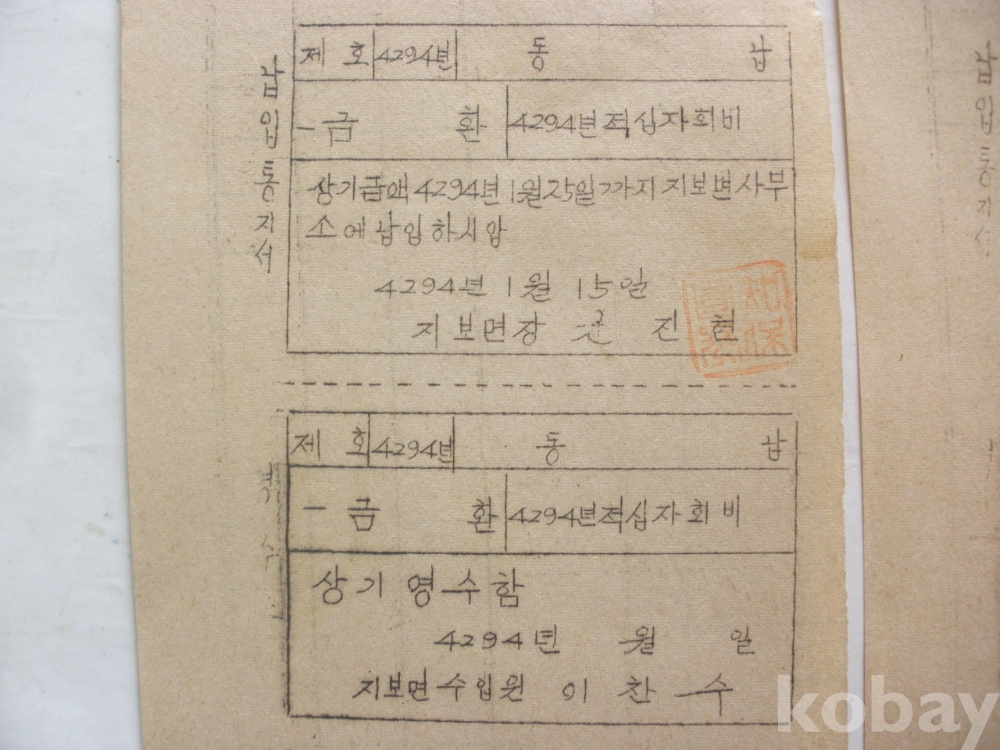 납입통지서
제 호 4294년 동 납
一금 환 4294년적십자회비
상기금액 4294년 1월25일까지 지보면사무
소에 납입하시압
4294년 1월 15일
지보면장 진 현
제 호 4294년 동 납
一금 환 4294년적십자회비
상기 영수함
4294년 월 일
지보면수입원 이 찬 수
납입통지서
kobay